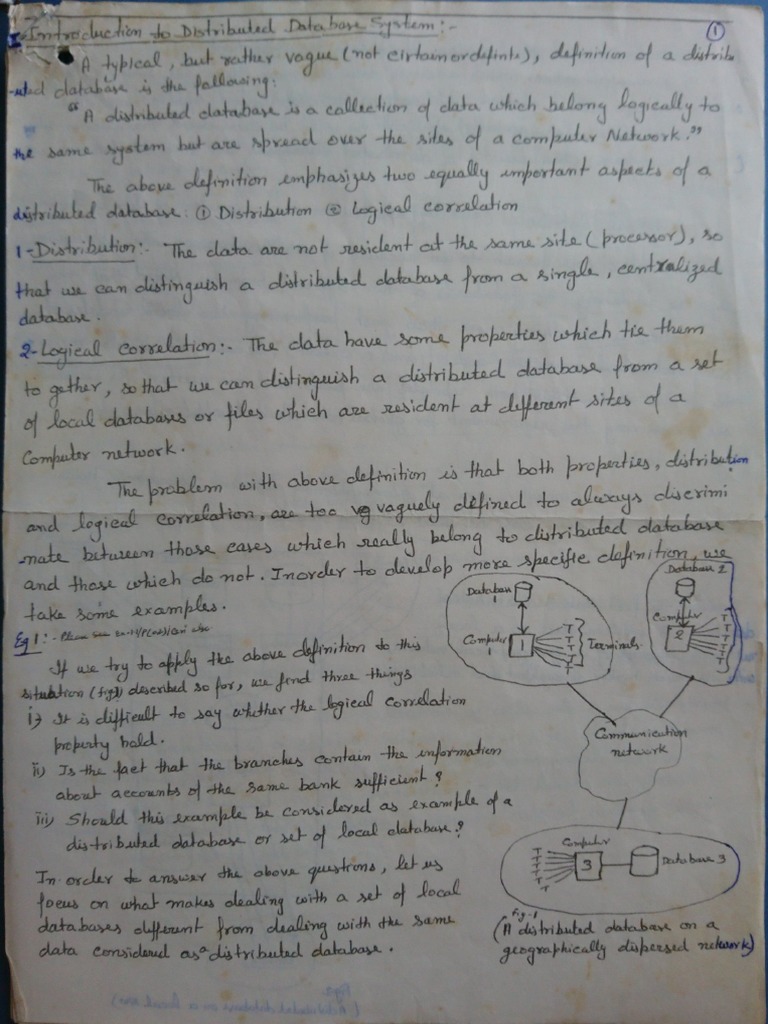 I- Introduction to Distributed Database System:-
1
A typical, but rather vague (not cirtain or definte), definition of a distrib
-uted database is the following:
"A distributed database is a collection of data which belong logically to
the same system but are spread over the sites of a computer Network."
The above definition emphasizes two equally important aspects of a
distributed database: ① Distribution ② Logical correlation
1-Distribution:- The data are not resident at the same site (processor), so
that we can distinguish a distributed database from a single, centralized
database.
2-Logical correlation:- The data have some properties which tie them
to gether, so that we can distinguish a distributed database from a set
of local databases or files which are resident at different sites of a
Computer network.
The problem with above definition is that both properties, distribution
and logical correlation, are too vaguely defined to always discrimi
nate between those cases which really belong to distributed database
and those which do not. Inorder to develop more specific definition, we
take some examples.
Eg 1:- Please see
If we try to apply the above definition to this
situation (fig1) described so for, we find three things
i) It is difficult to say whether the logical correlation
property hold.
ii) Is the fact that the branches contain the information
about accounts of the same bank sufficient?
iii) Should this example be considered as example of a
distributed database or set of local database?
In order to answer the above questions, let us
focus on what makes dealing with a set of local
databases different from dealing with the same
data considered as a distributed database.
Database
1
Computer
1
1
T
T
T
T
T
Terminals
Database 2
Computer
2
T
T
T
T
T
Communication
network
Computer
3
T
T
T
T
Database 3
Fig-1
(A distributed database on a
geographically dispersed network)